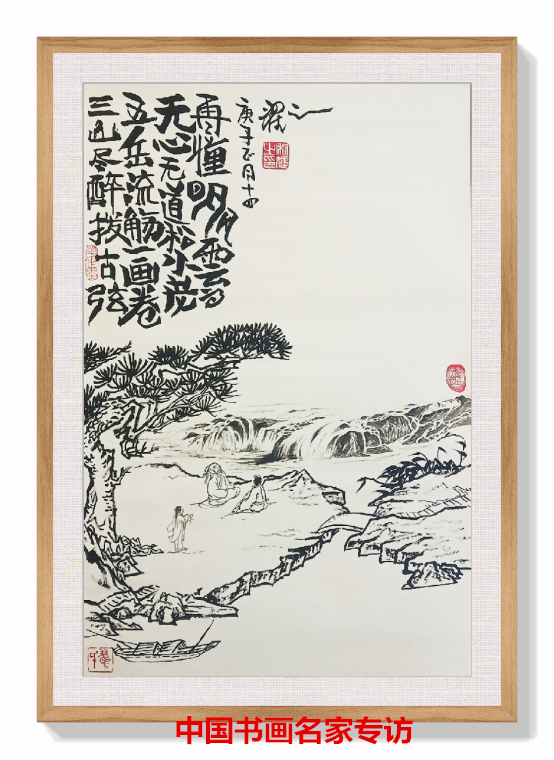 三山尽醉拨古弦
五岳流觞一画卷
无心无道私小
再憧明月雲
庚子正月十四
之
中国书画名家专访